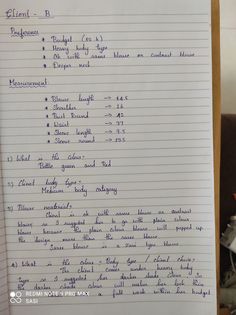 Client - B
Preference
* Budget
* Heavy body type
* Ok with same blouse or contrast blouse
* Deeper neck
Measurement
* Blouse length → 14.5
* Shoulder → 16
* Bust Round → 42
* Waist → 37
* Sleeve length →
* Sleeve round →
1) What is the colour:
Bottle green and Red
2) Client body type:
Medium body category
3) Blouse material:
Client is ok with same blouse or contrast
blouse, so I suggested her to go with plain colour
blouse because the plain colour blouse will popped up
the design more than the same blouse.
Same blouse is a type blouse
4) What is the colour: Body type / client choice:
The client comes under heavy body
type so I suggested her darker shade colour
the darker shade colour will make her look thin
a full work within her budget
REDMI NOTE 9 PRO MAX
SASI